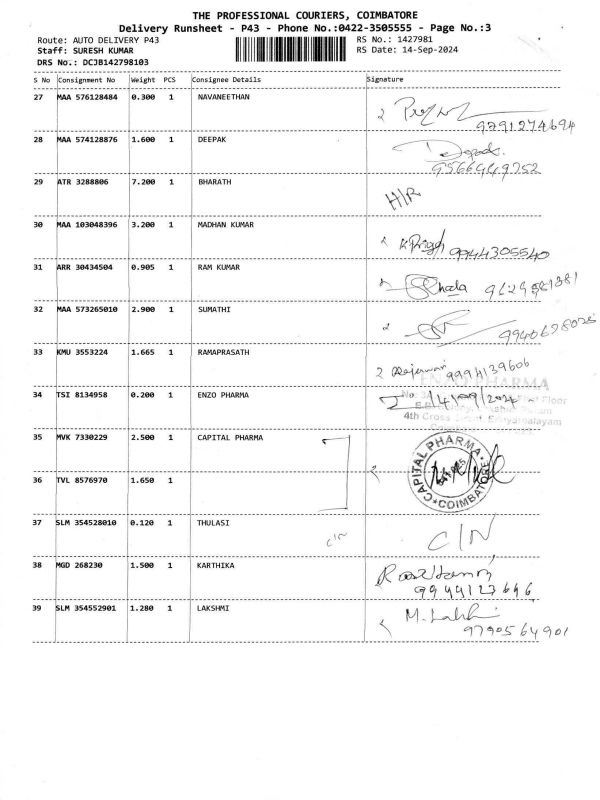 THE PROFESSIONAL COURIERS, COIMBATORE
Delivery Runsheet - P43 - Phone No.:0422-3505555 - Page No.:3
Route: AUTO DELIVERY P43 RS No.: 1427981
Staff: SURESH KUMAR RS Date: 14-Sep-2024
DRS No.: DCJB142798103
S No Consignment No Weight PCS Consignee Details Signature
27 MAA 576128484 0.300 1 NAVANEETHAN
9791274694
28 MAA 574128876 1.600 1 DEEPAK
Deepak
9566449752
29 ATR 3288806 7.200 1 BHARATH
H/R
30 MAA 103048396 3.200 1 MADHAN KUMAR
9944305540
31 ARR 30434504 0.905 1 RAM KUMAR
32 MAA 573265010 2.900 1 SUMATHI
33 KMU 3553224 1.665 1 RAMAPRASATH
9994139606
34 TSI 8134958 0.200 1 ENZO PHARMA
ENZO PHARMA
14/09/2024
4th Cross
35 MVK 7330229 2.500 1 CAPITAL PHARMA
CAPITAL PHARMA
COIMBATORE
36 TVL 8576970 1.650 1
37 SLM 354528010 0.120 1 THULASI
C/N C/N
38 MGD 268230 1.500 1 KARTHIKA
39 SLM 354552901 1.280 1 LAKSHMI
9790564901